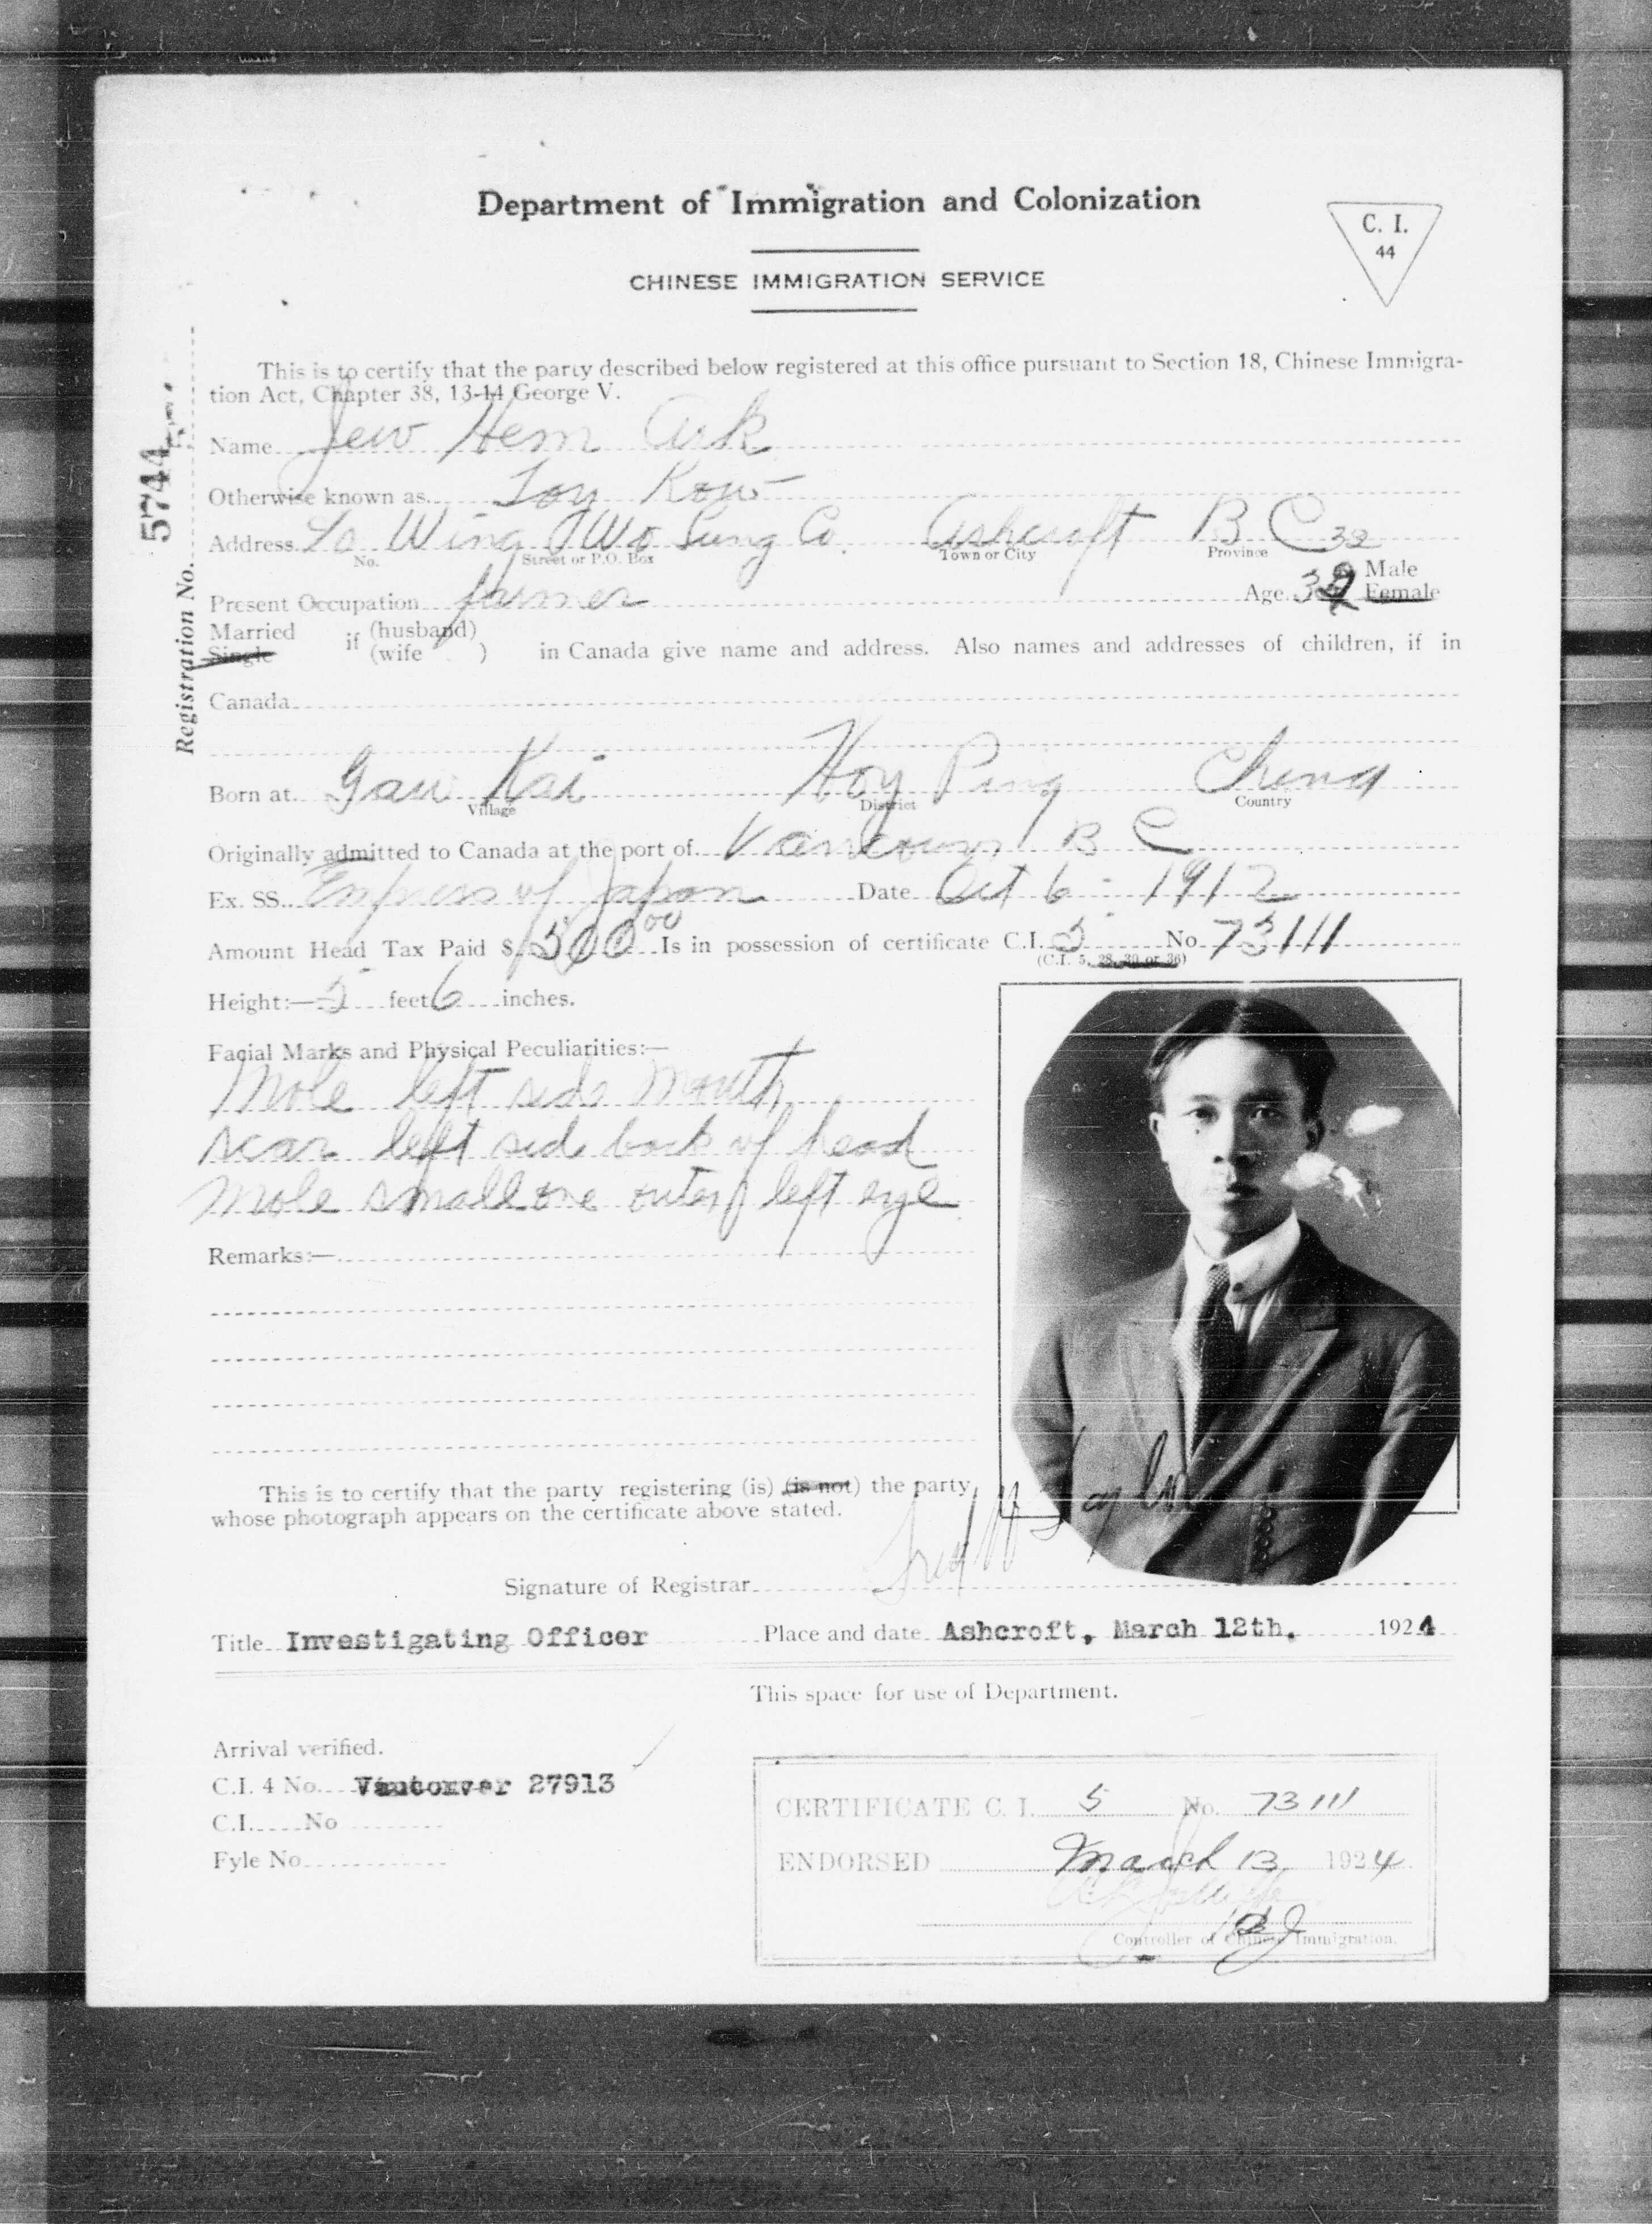 Department of Immigration and Colonization
C. I.
44
CHINESE IMMIGRATION SERVICE
Registration No. 5744
This is to certify that the party described below registered at this office pursuant to Section 18, Chinese Immigra-
tion Act, Chapter 38, 13-14 George V.
Name Jew Hem Ark
Otherwise known as Toy Kow
Address Wing Wo Sung Co. Ashcroft B C
No. Street or P.O. Box Town or City Province
32
Present Occupation farmer Age 32 Male
Female
Married
Single if (husband)
(wife ) in Canada give name and address. Also names and addresses of children, if in
Canada
Born at Gaw Kai Hoy Ping China
Village District Country
Originally admitted to Canada at the port of Vancouver B C
Ex. SS. Empress of Japan Date Oct 6 - 1912
Amount Head Tax Paid $ 500 00 Is in possession of certificate C.I. 5 No 73111
(C.I. 5, 28, 30 or 36)
Height:— 5 feet 6 inches.
Facial Marks and Physical Peculiarities:—
Mole left side mouth
scar left side back of head
mole small one outer left eye
Remarks:—
This is to certify that the party registering (is) (is not) the party
whose photograph appears on the certificate above stated.
Signature of Registrar Fred W Taylor
Title Investigating Officer Place and date Ashcroft, March 12th, 1924
This space for use of Department.
Arrival verified.
C.I. 4 No. Vancouver 27913
C.I. No
Fyle No
CERTIFICATE C. I. 5 No. 73111
ENDORSED March 13, 1924
Controller of Chinese Immigration.